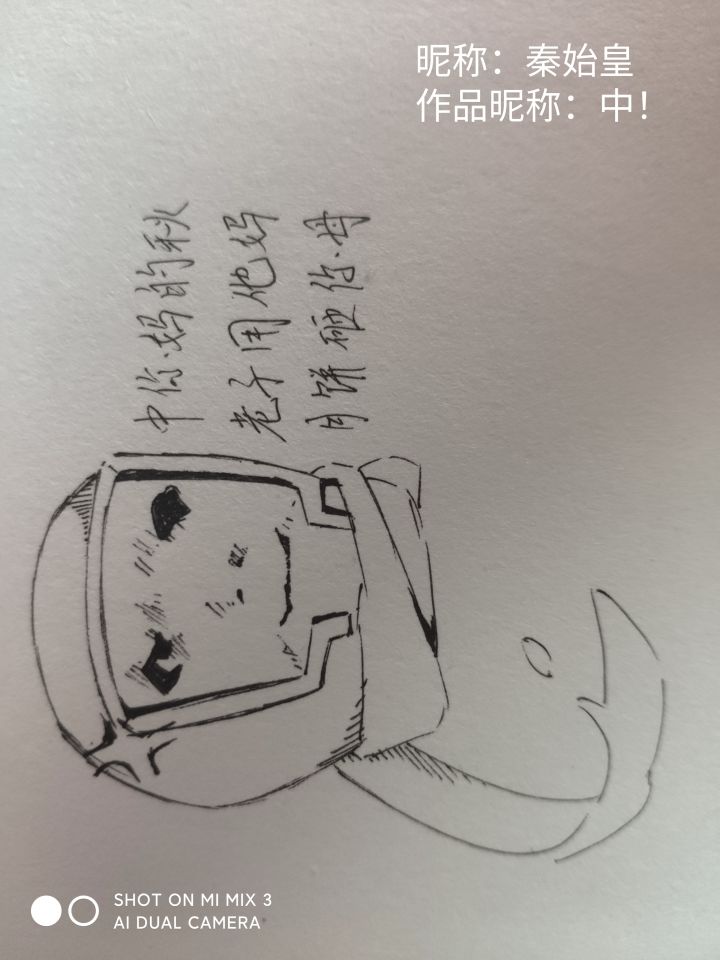 昵称：秦始皇
作品昵称：中！
中你妈的秋
老子用他妈
月饼砸你·母
SHOT ON MI MIX 3
AI DUAL CAMERA